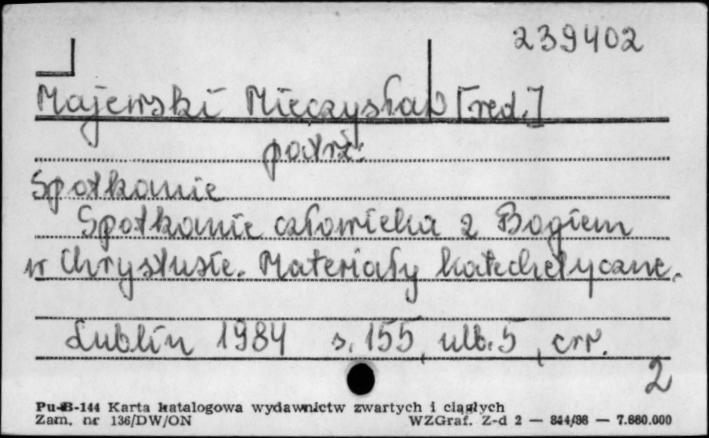 239402
Majewski Mieczysław [red.]
patrz:
Spotkanie
Spotkanie człowieka z Bogiem
w Chrystusie. Materiały katechetyczne.
Lublin 1984 s. 155, ulb. 5, err.
2
Pu-B-144 Karta katalogowa wydawnictw zwartych i ciągłych
Zam. nr 136/DW/ON WZGraf. Z-d 2 — 844/86 — 7.660.000